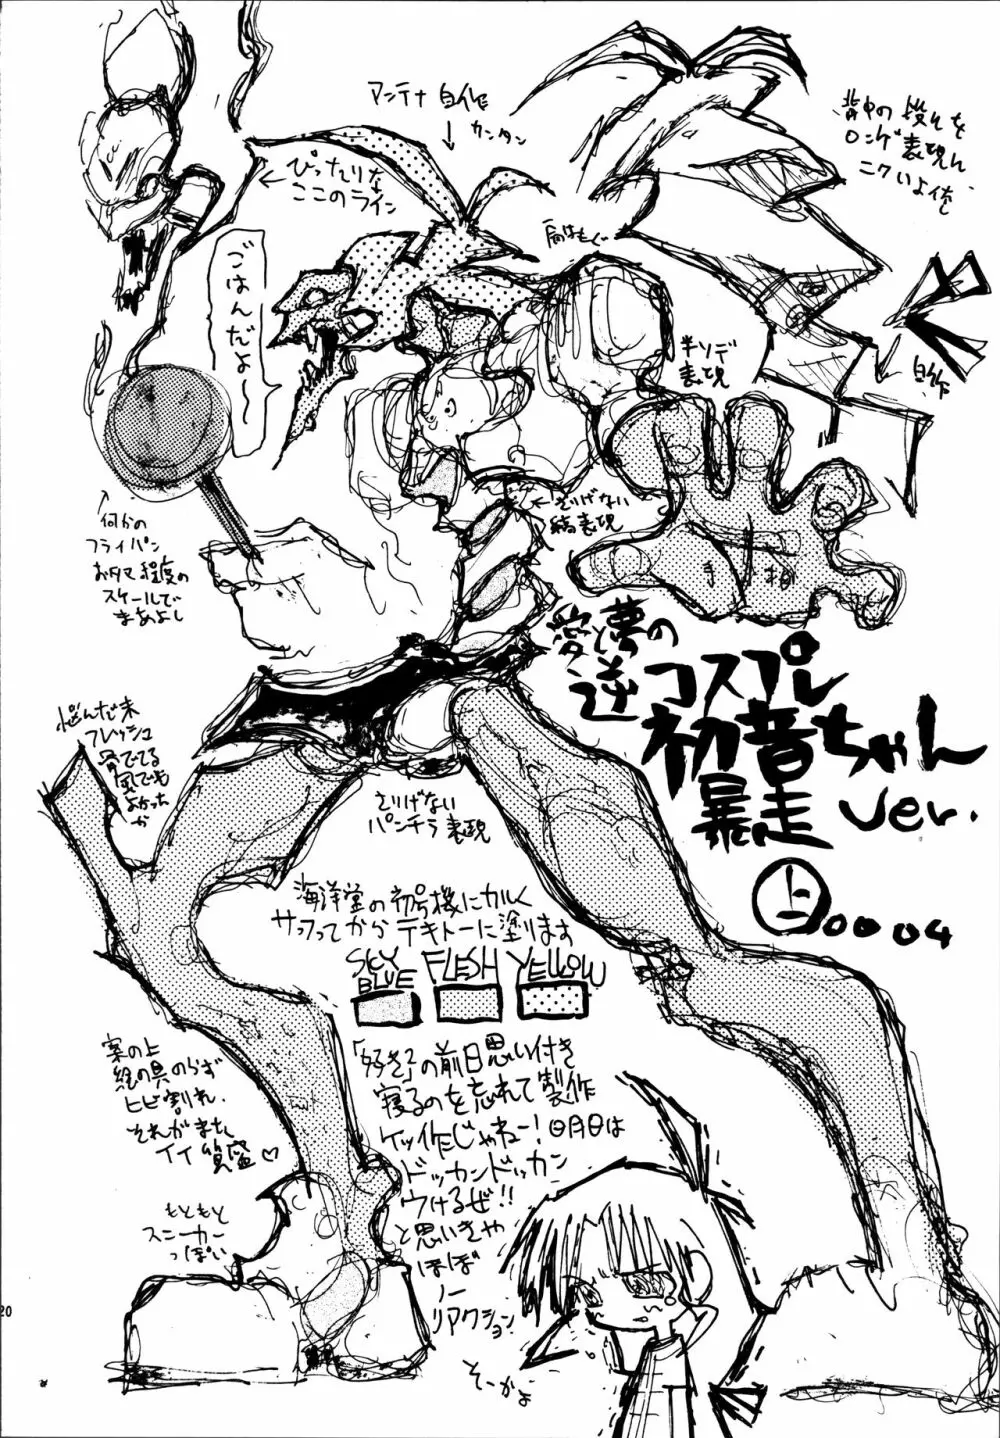 アンテナ 自作
カンタン
背中の段々を
ロンゲ表現
ニクいよ俺
ぴったりな
ここのライン
肩はもぐ
ごはんだよ〜
半ソデ
表現
自作
さりげない
縞表現
何かの
フライパン
おタマ程度の
スケールで
まあよし
手相
愛と夢の
逆コスプレ
初音ちゃん
暴走 ver.
上 0004
悩んだ末
フレッシュ
骨でてる
風でも
よかったか
さりげない
パンチラ表現
海洋堂の初号機にカルく
サフってからテキトーに塗ります
SKY BLUE FLESH YELLOW
案の上
絵の具のらず
ヒビ割れ、
それがまた
イイ質感♡
「好き2」の前日思い付き
寝るのを忘れて製作
ケッ作じゃねー!明日は
ドッカンドッカン
ウけるぜ!!
と思いきや
ほぼ
ノー
リアクション
もともと
スニーカー
っぽい
そーかよ
20